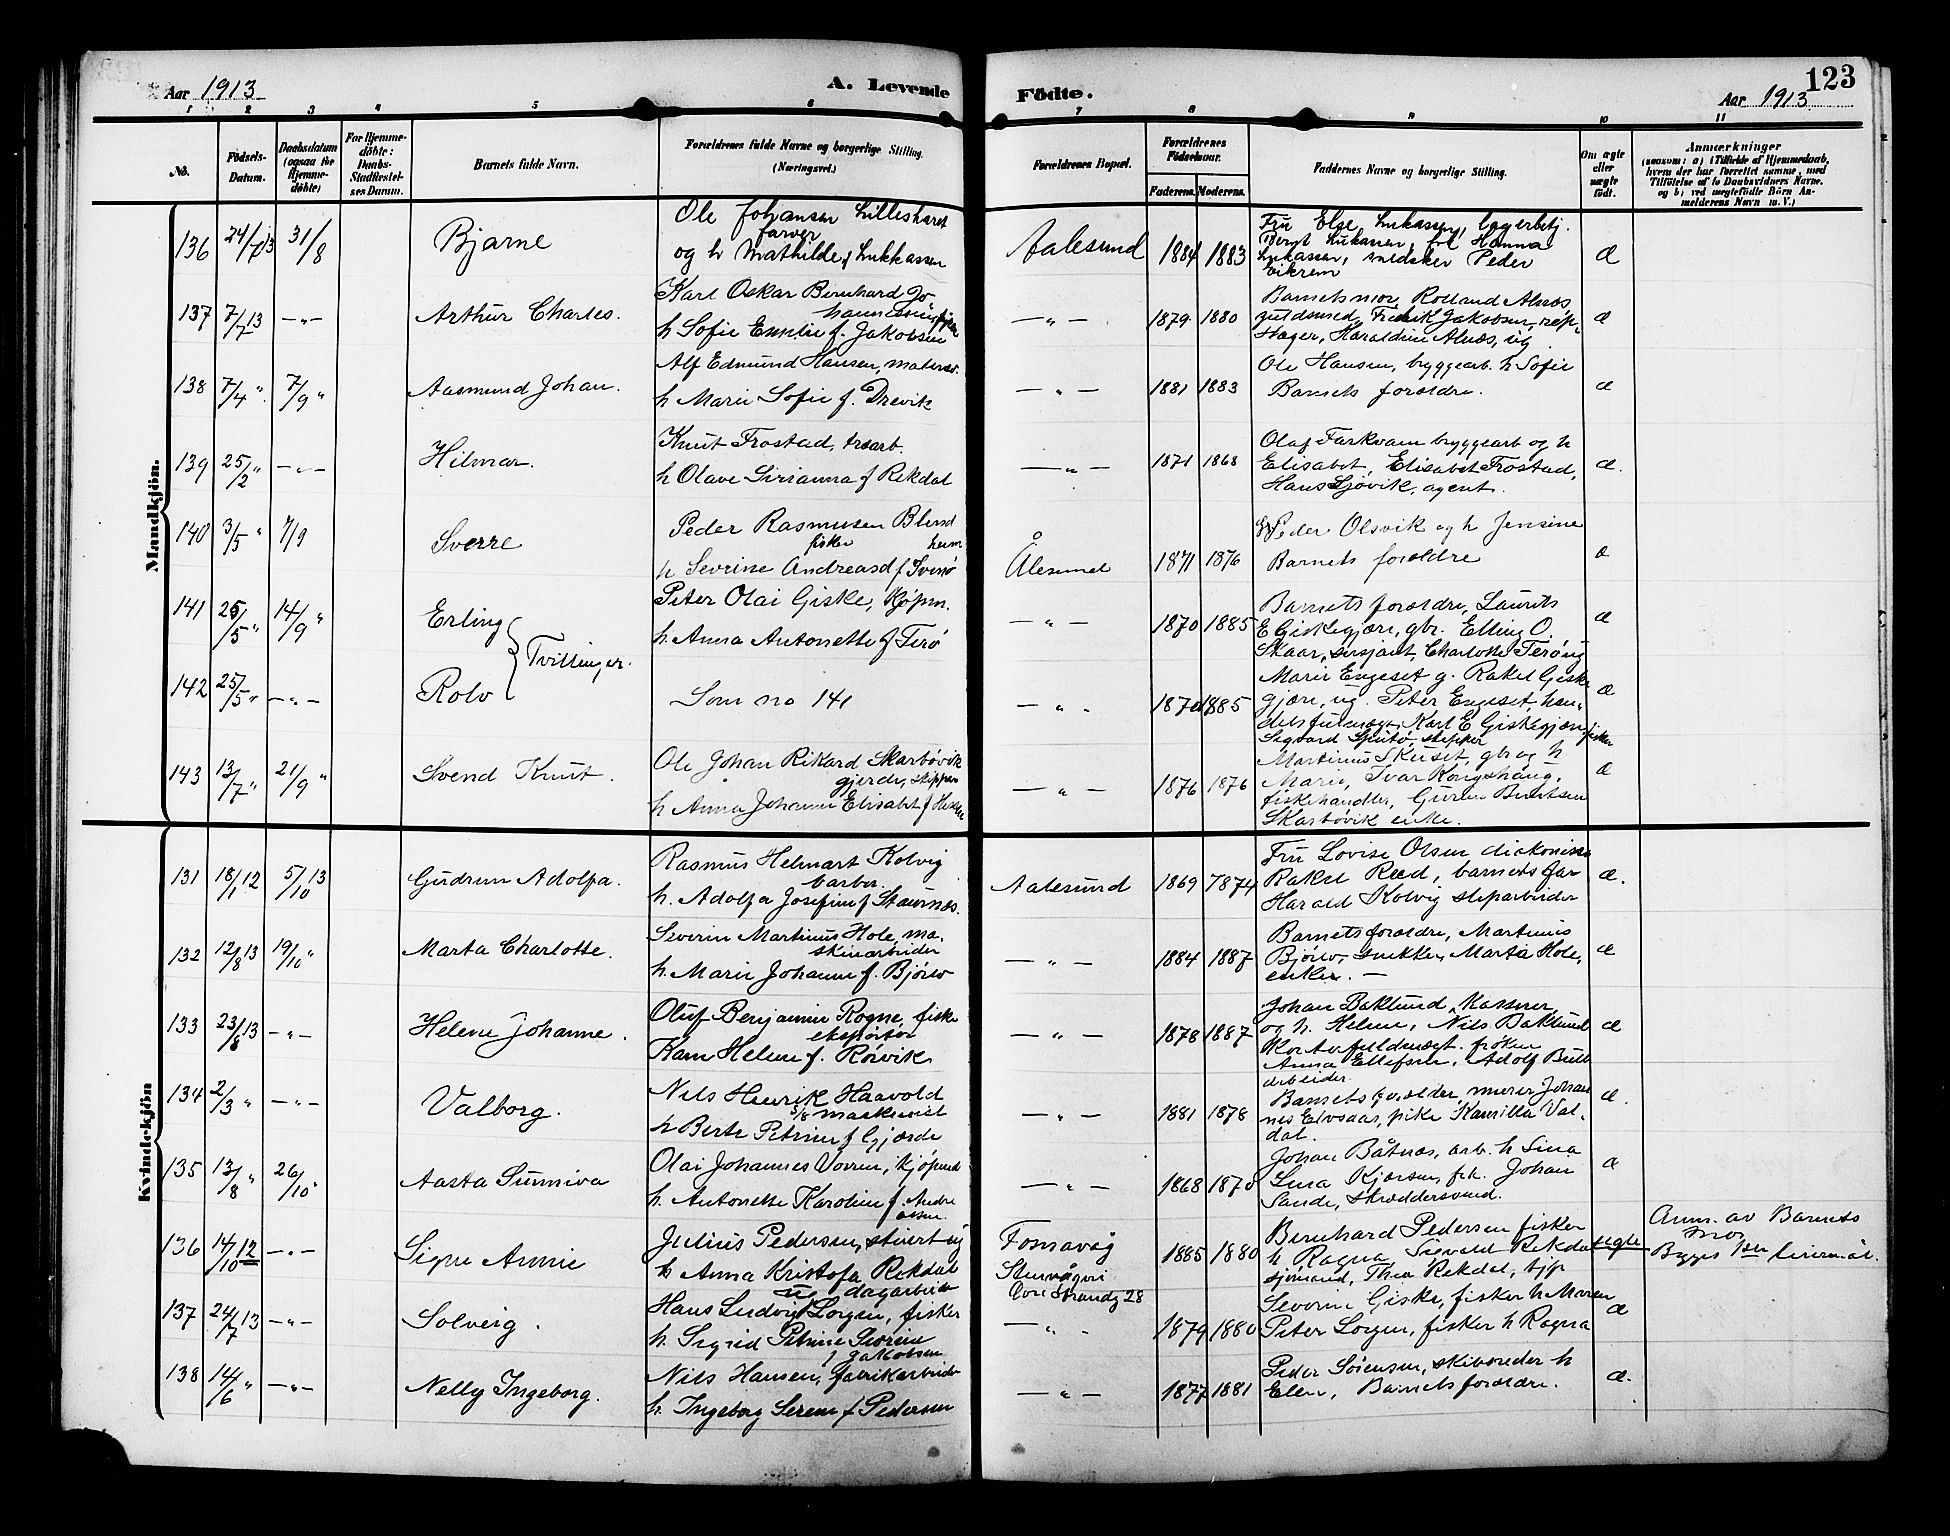 Aar 1913
A. Levende
Födte.
123
Aar 1913
1 2 3 4 5 6 7 8 9 10 11
No.
Födsels-Datum.
Daabsdatum (ogsaa for Hjemme-döbte)
For Hjemme-döbte: Daabs-Stadfæstel-ses Datum.
Barnets fulde Navn.
Forældrenes fulde Navne og borgerlige Stilling.
(Næringsvei.)
Forældrenes Bopæl.
Forældrenes Födselsaar.
Faderens. Moderens.
Faddernes Navne og borgerlige Stilling.
Om ægte eller uægte födt.
Anmærkninger
(saasom: a) i Tilfælde af Hjemmedaab,
hvem der har forrettet samme, med
Tilföielse af to Daabsvidners Navne.
og b) ved uægtefödte Börn An-
melderens Navn m. V.)
Mandkjön.
136 24/7 13 31/8 Bjarne
Ole Johansen Lilleskaret
farver
og h Mathilde f Lukkassen
Aalesund 1884 1883
Fru Else Lukassen, lagerbetj.
Bernt Lukassen, frk Hanna
Lukassen, snedker Peder
Vikrem
æ
137 7/7 13 —"— Arthur Charles.
Karl Oskar Bernhard Jo-
h Sofie Emelie f. Jakobsen
—"— 1879 1880
Barnets mor, Rolland Alnæs
guldsmed, Fredrik Jakobsen, rep-
slager, Haraldine Alnæs, ug
æ
138 7/4 " 7/9 " Aasmund Johan.
Alf Edmund Hansen, matros
h Marie Sofie f. Drevik
—"— 1881 1883
Ole Hansen, bryggearb. h Sofie
Barnets forældre.
æ
139 25/2 " —"— Hilmar.
Knut Frostad, træarb.
h Olave Sirianna f Rekdal
—"— 1871 1868
Olaf Farkvam bryggearb og h
Elisabet, Elisabet Frostad,
Hans Sjövik, agent.
æ.
140 3/5 " 7/9 Sverre
Peder Rasmusen Blend
fisker heim
h Sevrine Andreasd f Svinø
Ålesund 1871 1876
Peder Olsvik og h Jensine
Barnets forældre
æ
141 25/5 " 14/9 " Erling
Tvillinger.
Peter Olai Giske, Kjøpm.
h. Anna Antonette f Terø
—"— 1870 1885
Barnets forældre, Laurits
E Giskegjære, gbr. Elling O.
Skaar, sersjant, Charlotte Terø ug
æ
142 25/5 " —"— Rolv
Som no 141
—"— 1870 1885
Marie Engeset g. Rakel Giske
gjære, ug. Peter Engeset, han-
delsfuldmægt. Karl E Giskegjære fisker
æ
143 13/7 " 21/9 " Svend Knut.
Ole Johan Rikard Skarbövik
gjerde, skipper
h Anna Johanne Elisabet f
—"— 1876 1876
Sigvard skipper
Martinus Skuset, gbr og h
Marie, Ivar Kongshaug,
fiskehandler, Guren Berntsen
Skarbövik enke.
æ
Kvindekjön
131 18/1 12 5/10 13 Gudrun Adolfa.
Rasmus Helmart Kolvig
barber.
h. Adolfa Josefine f Staurnæs.
Aalesund 1869 1874
Fru Lovise Olsen diakonisse
Rakel Reed, barnets far
Harald Kolvig sliparbeider
æ.
132 12/8 13 19/10 " Marta Charlotte.
Severin Martinus Hole, ma-
skinarbeider
h. Marie Johanne f. Bjørlo
—"— 1884 1887
Barnets forældre, Martinus
Bjørlo, snekker, Marta Hole,
enke. —
æ
133 23/8 13 —"— Helene Johanne.
Oluf Benjamin Rogne, fiske
eksportør
Karn Helene f. Rørvik
—"— 1878 1887
Johan Baklund, Kasserer
og h. Helene, Nils Baklund
frøken
Anna Ellefsen, Adolf
arbeider.
æ
134 2/3 " —"— Valborg.
Nils Henrik Haavold
s/s maskinist
h Berte Petrine f Gjærde
—"— 1881 1878
Barnets forælder, murer Johan-
nes Elvsaas, pike Kamilla Val-
dal.
æ.
135 13/8 " 26/10 " Aasta Sunniva
Olai Johannes Vovren, Kjøpmd
h. Antonette Karoline f. Andre
asen
—"— 1868 1870
Johan Båtnæs, arb. h Lina
Lina Kjærsen, frk. Johan
Sande, skræddersvend.
æ
136 14/10 12 —"— Signe Annie
Julius Pedersen, stuert ug
h Anna Kristofa Rekdal
ug dagarbeide
Fosnavåg
28
1885 1880
Bernhard Pedersen fisker
h Ragna Sigvald Rekdal
sjømand, Thea Rekdal, tjp
uegte
Anm. av Barnets
mor
Begges 1ste leiermål.
137 24/7 13 —"— Solveig.
Hans Ludvig Longva, fisker
h. Sigrid Petrine Severine
f Jakobsen
—"— 1879 1880
Severin Giske, fisker h Maren
Peter Longva, fisker h Ragna
æ
138 14/6 " —"— Nelly Ingeborg.
Nils Hansen, fabrikarbeider
h. Ingeborg Serene f Pedersen
—"— 1877 1881
Peder Sørensen, skibsreder h
Elen, Barnets forældre.
æ.